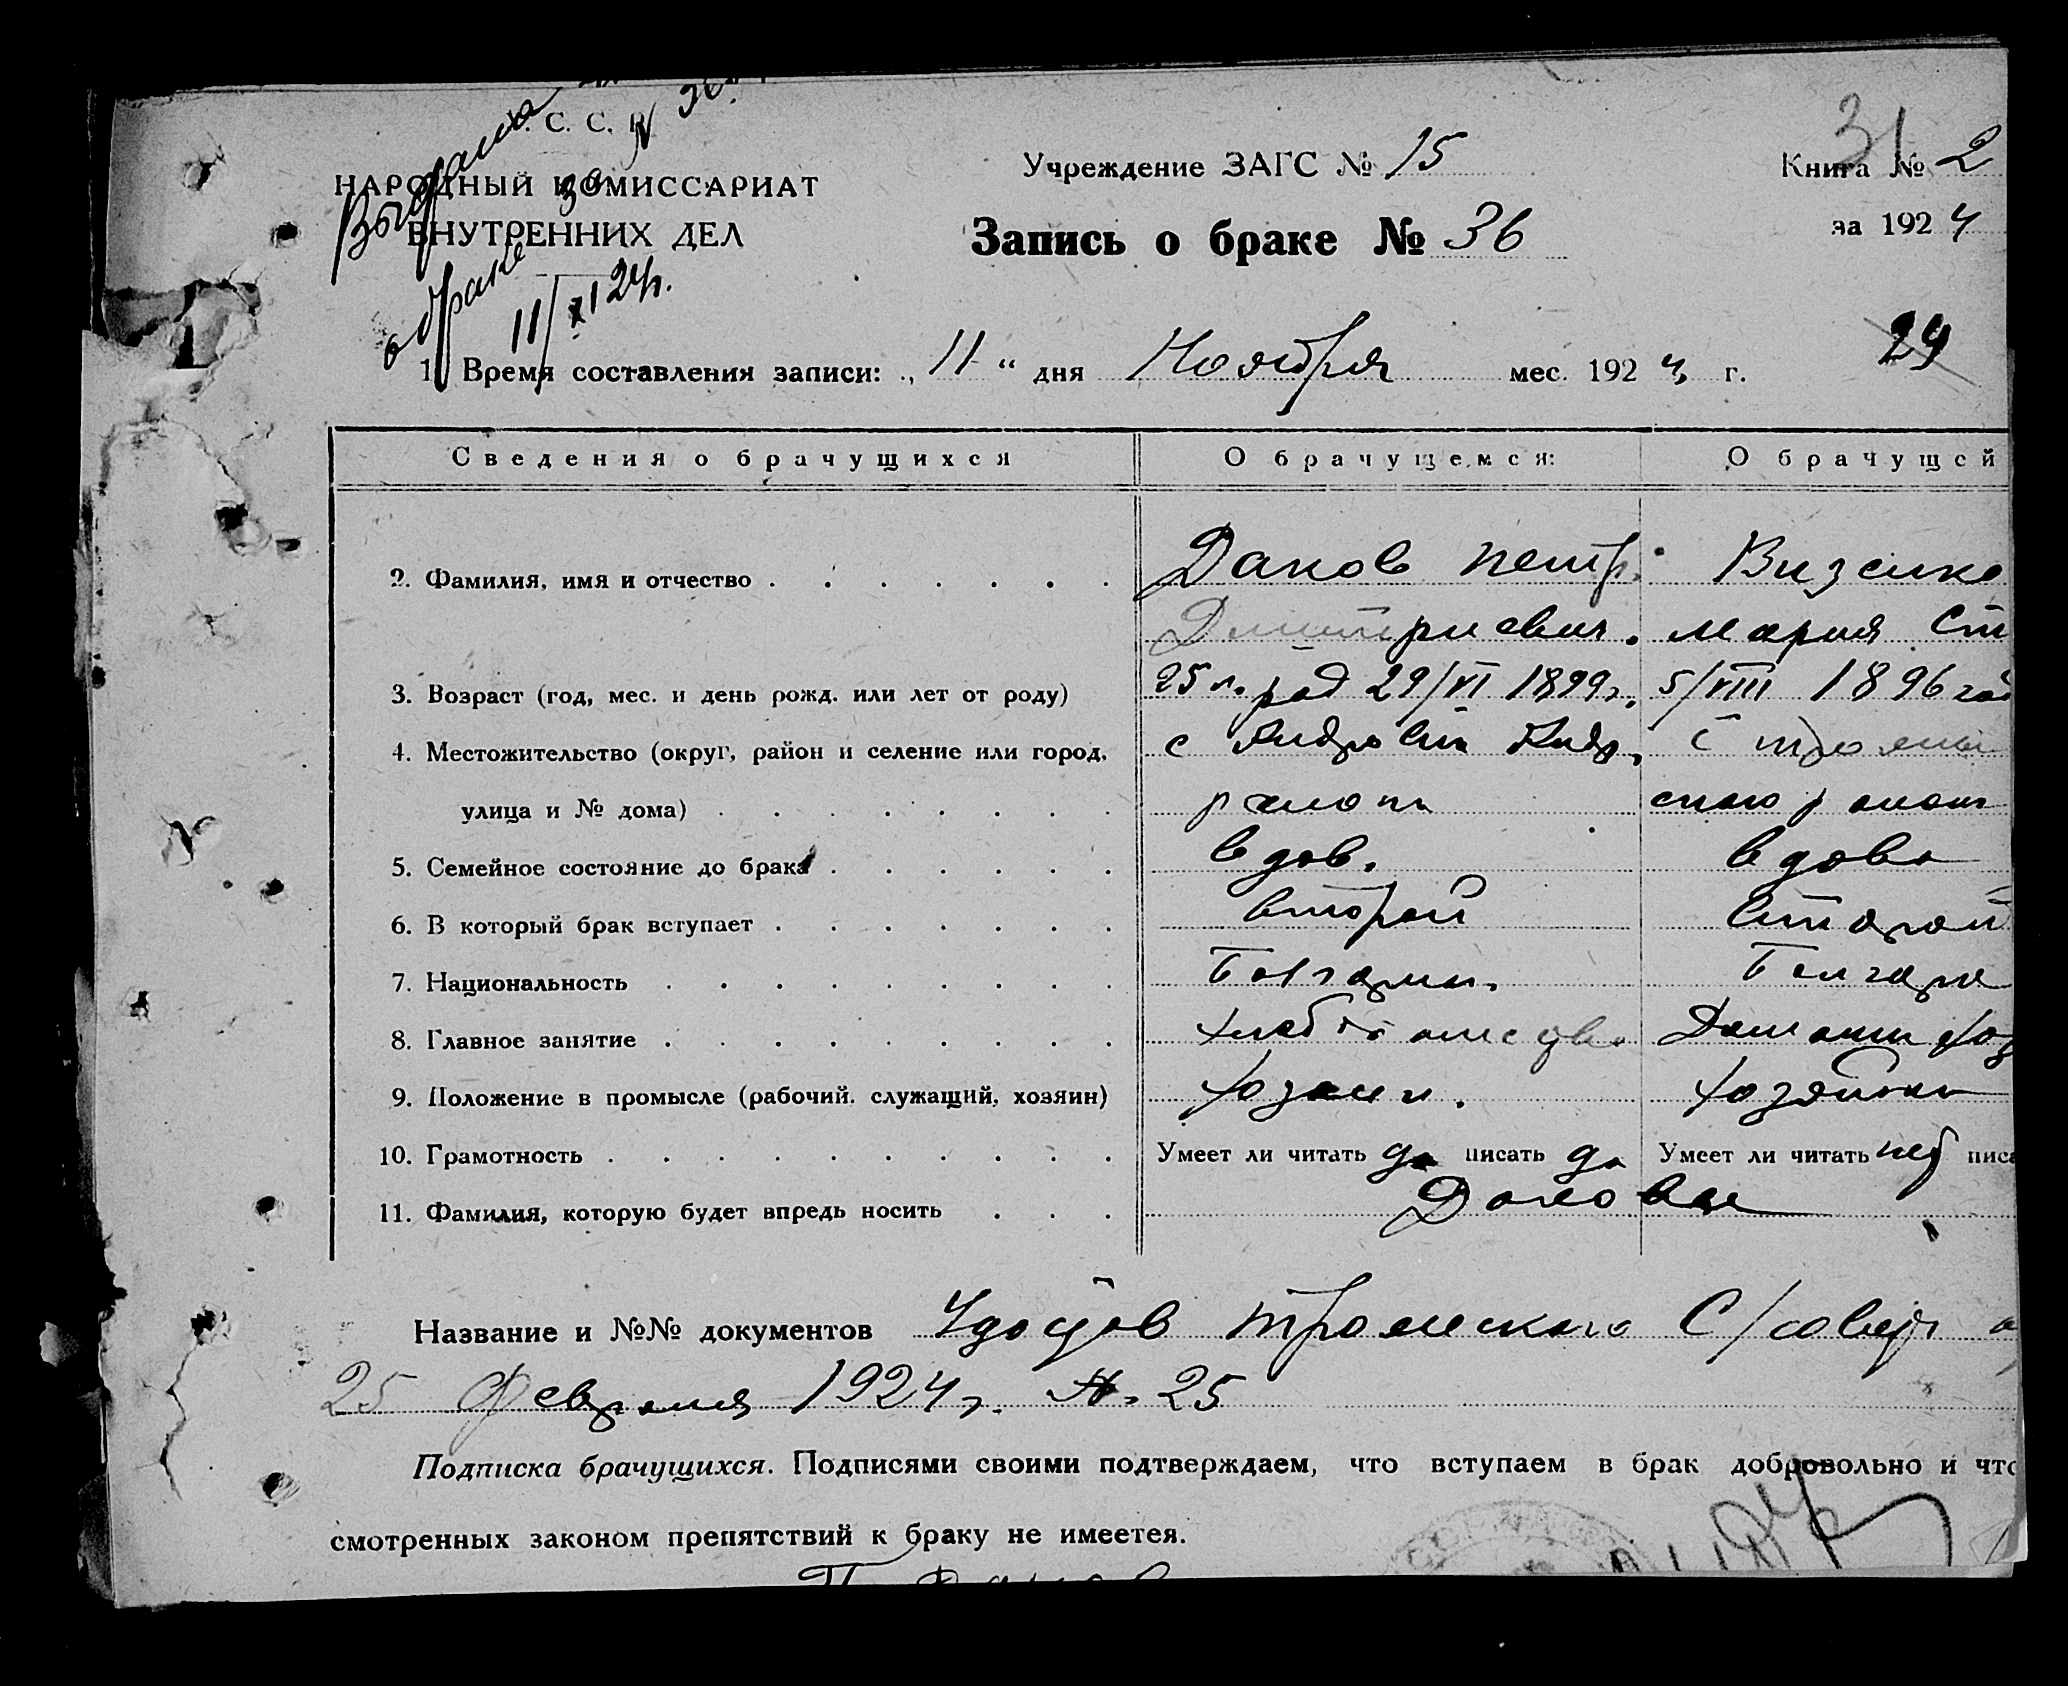 С. С. Р.
31
Учреждение ЗАГС № 15
Книга № 2
НАРОДНЫЙ КОМИССАРИАТ
ВНУТРЕННИХ ДЕЛ
Запись о браке № 36
за 1924
Выдана
за № 36
о браке
11/XI 24г.
29
1. Время составления записи: „ 11 “ дня Ноября мес. 1924 г.
Сведения о брачущихся О брачущемся: О брачущей
2. Фамилия, имя и отчество Даков Петр. Визенко
Дмитриевич. Мария Ст
3. Возраст (год, мес. и день рожд. или лет от роду) 25 л. род 29/VI 1899г. 5/VIII 1896 год
4. Местожительство (округ, район и селение или город, с Трояны
улица и № дома) района района
5. Семейное состояние до брака вдов. вдова
6. В который брак вступает второй второй
7. Национальность Болгарин. Болгарка
8. Главное занятие хлебопашество Домашн хоз
9. Положение в промысле (рабочий, служащий, хозяин) хозяин. хозяйка
10. Грамотность Умеет ли читать да писать да Умеет ли читать нет писа
11. Фамилия, которую будет впредь носить Даковы
Название и №№ документов Удостов Троянского С/совета
25 февраля 1924 г. № 25
Подписка брачущихся. Подписями своими подтверждаем, что вступаем в брак добровольно и что
смотренных законом препятствий к браку не имеется.